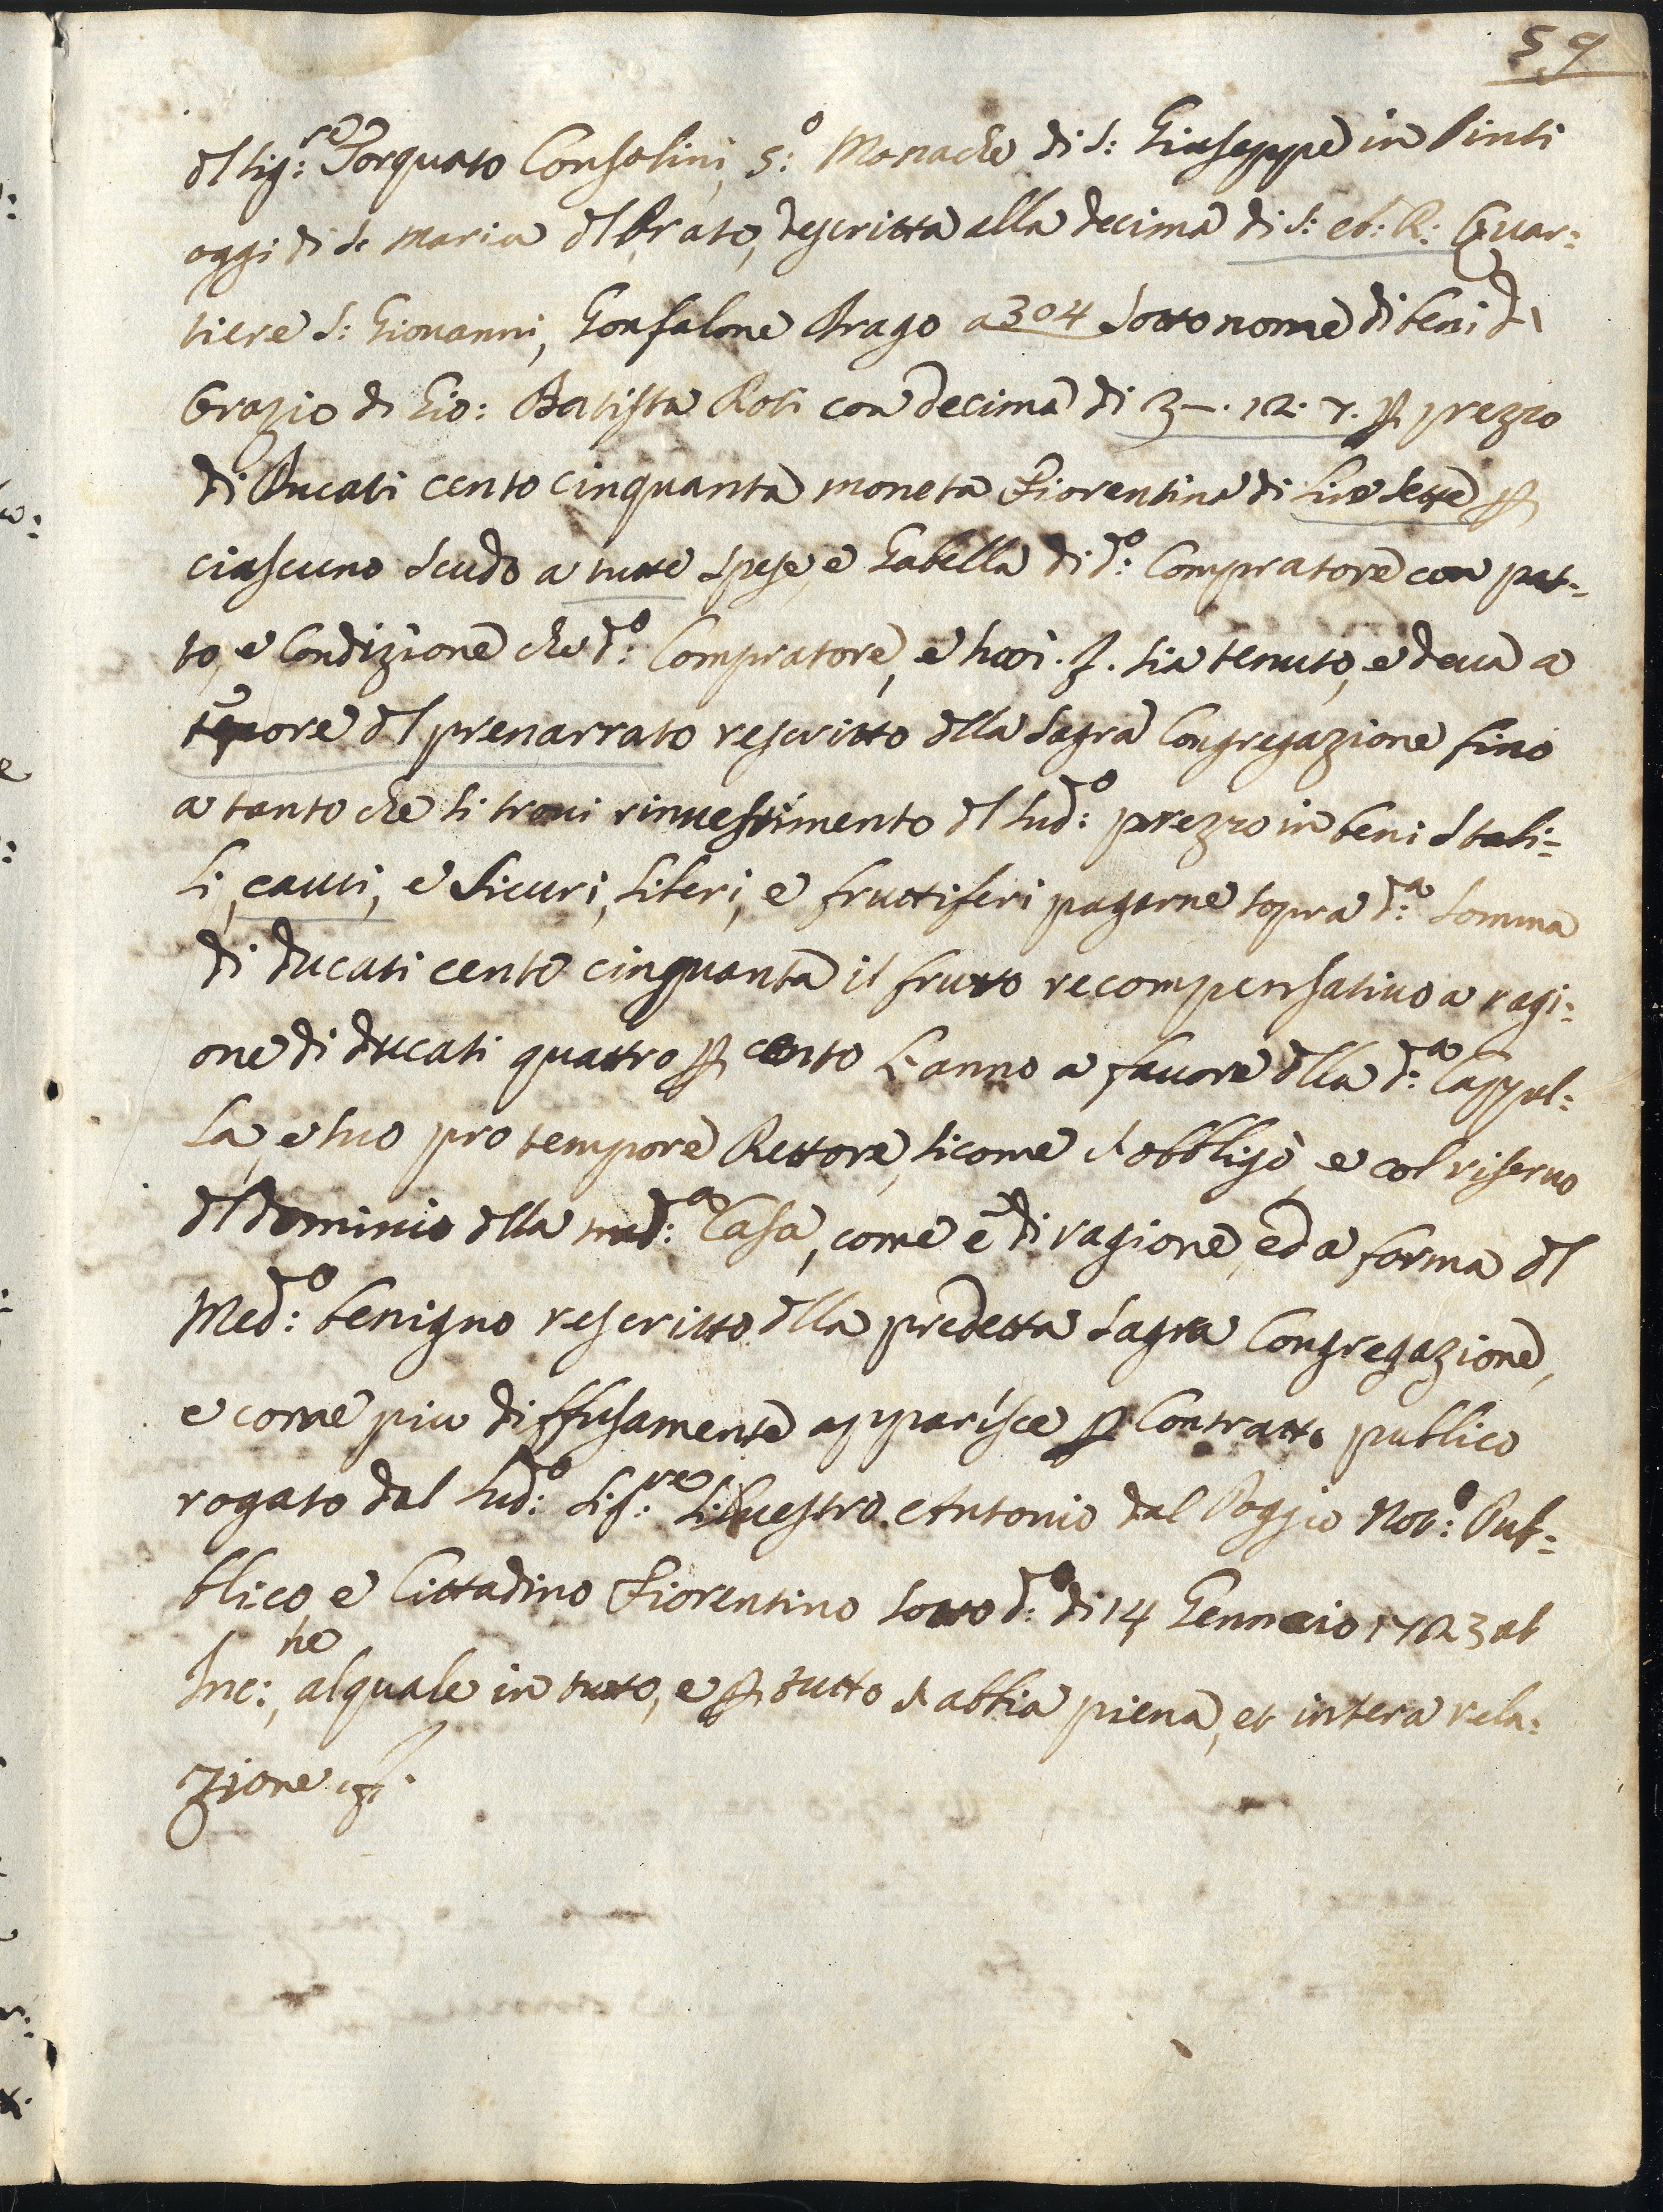 59
dl Sig:re Torquato Consolini, 5:o Monache di S: Giuseppe in Pinti
oggi di S. Maria dl Prato, descritta alla decima di S: et: R: Quar:
tiere S: Giovanni, Gonfalone Drago a 304 sotto nome di beni di
Orazio di Gio: Batista Roti con decima di 3–. 12. 7. p prezzo
di Ducati cento cinquanta moneta Fiorentina di Lire sette p
ciascuno scudo a tutte spese, e Gabella di d:o Compratore con pat-
to, e Condizione che d:o Compratore, e suoi. sia tenuto, e deva a
tenore dl prenarrato rescritto dlla Sagra Congregazione fino
a tanto che si trovi rinvestimento dl sud:o prezzo in beni stabi=
li, cauti, e sicuri, liberi, e fruttiferi pagarne sopra d:a somma
di ducati cento cinquanta il frutto recompensativo a ragi:
one di ducati quattro p cento L'anno a favore dlla d:a Cappel:
la, e suo pro tempore Rettore, sicome s'obbligò, e col riservo
dl dominio dlla med:a Casa, come è di ragione, ed a forma dl
Med:o benigno rescritto dlla predetta Sagra Congregazione,
e come piu diffusamente apparisce p Contratto publico
rogato dal sud:o Sig:re Silvestro Antonio dal Poggio Not:o Pub=
blico, e Cittadino Fiorentino sotto d:o di 14 Gennaio 1723 ab
Inc:ne, al quale in tutto, e p tutto s'abbia piena, et intera rela:
zione